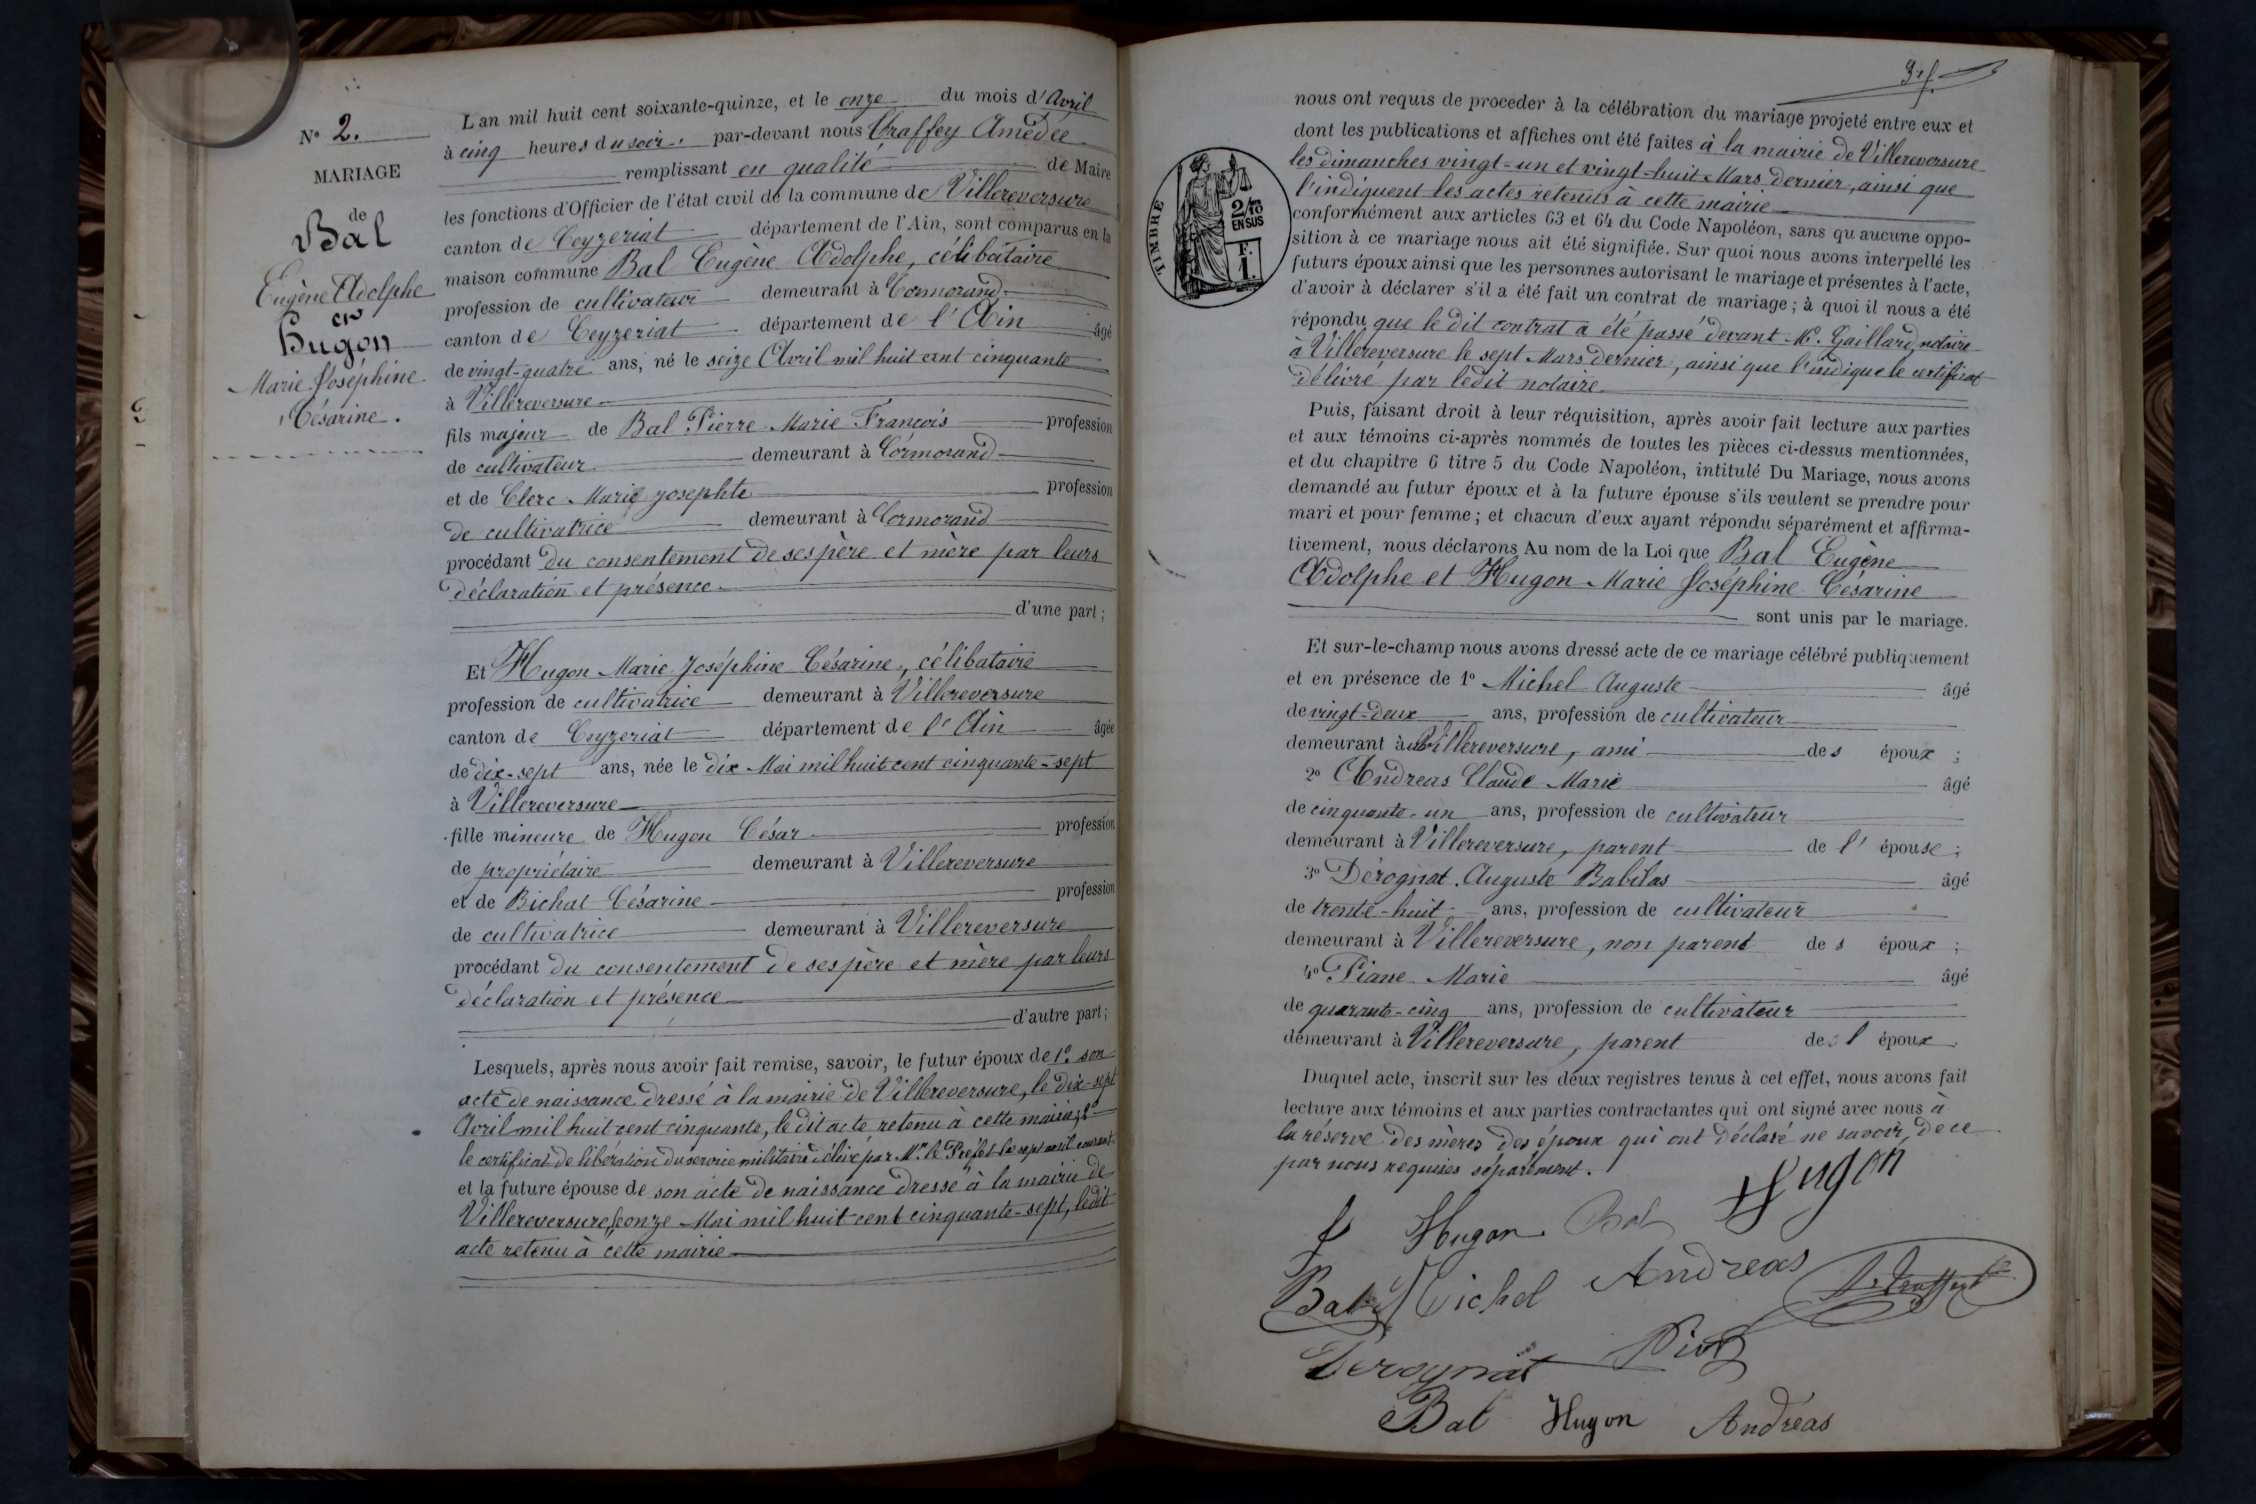 N° 2.
MARIAGE
de
Bal
Eugène Adolphe
et
Hugon
Marie Joséphine
Césarine.
L'an mil huit cent soixante-quinze, et le onze du mois d'Avril
à cinq heures du soir. par-devant nous Traffey Amédée
remplissant en qualité de Maire
les fonctions d'Officier de l'état civil de la commune de Villereversure
canton de Ceyzeriat département de l'Ain, sont comparus en la
maison commune Bal Eugène Adolphe, célibataire
profession de cultivateur demeurant à Cormorand
canton de Ceyzeriat département de l'Ain âgé
de vingt-quatre ans, né le seize Avril mil huit cent cinquante
à Villereversure
fils majeur de Bal Pierre Marie François profession
de cultivateur demeurant à Cormorand
et de Clerc Marie josephte profession
de cultivatrice demeurant à Cormorand
procédant du consentement de ses père et mère par leurs
déclaration et présence
d'une part;
Et Hugon Marie Joséphine Césarine, célibataire
profession de cultivatrice demeurant à Villereversure
canton de Ceyzeriat département de l'Ain âgée
de dix-sept ans, née le dix Mai mil huit cent cinquante-sept
à Villereversure
fille mineure de Hugon César profession
de propriétaire demeurant à Villereversure
et de Bichat Césarine profession
de cultivatrice demeurant à Villereversure
procédant du consentement de ses père et mère par leurs
déclaration et présence
d'autre part;
Lesquels, après nous avoir fait remise, savoir, le futur époux de 1° son
acte de naissance dressé à la mairie de Villereversure, le dix-sept
Avril mil huit cent cinquante, le dit acte retenu à cette mairie; 2°
le certificat de libération du service militaire délivré par Mr. le Préfet le sept avril courant.
et la future épouse de son acte de naissance dressé à la mairie de
Villereversure, le onze Mai mil huit cent cinquante-sept, ledit
acte retenu à cette mairie
3 f.
nous ont requis de proceder à la célébration du mariage projeté entre eux et
dont les publications et affiches ont été faites à la mairie de Villereversure
les dimanches vingt-un et vingt-huit Mars dernier, ainsi que
l'indiquent les actes retenus à cette mairie
TIMBRE
2/10
EN SUS
F.
1.
conformément aux articles 63 et 64 du Code Napoléon, sans qu'aucune oppo-
sition à ce mariage nous ait été signifiée. Sur quoi nous avons interpellé les
futurs époux ainsi que les personnes autorisant le mariage et présentes à l'acte,
d'avoir à déclarer s'il a été fait un contrat de mariage; à quoi il nous a été
répondu que le dit contrat a été passé devant M. Gaillard, notaire
à Villereversure le sept Mars dernier, ainsi que l'indique le certificat
délivré par ledit notaire.
Puis, faisant droit à leur réquisition, après avoir fait lecture aux parties
et aux témoins ci-après nommés de toutes les pièces ci-dessus mentionnées,
et du chapitre 6 titre 5 du Code Napoléon, intitulé Du Mariage, nous avons
demandé au futur époux et à la future épouse s'ils veulent se prendre pour
mari et pour femme; et chacun d'eux ayant répondu séparément et affirma-
tivement, nous déclarons Au nom de la Loi que Bal Eugène
Adolphe et Hugon Marie Joséphine Césarine
sont unis par le mariage.
Et sur-le-champ nous avons dressé acte de ce mariage célébré publiquement
et en présence de 1° Michel Auguste âgé
de vingt-deux ans, profession de cultivateur
demeurant à Villereversure, ami des époux;
2° Andreas Claude Marie âgé
de cinquante-un ans, profession de cultivateur
demeurant à Villereversure, parent de l'épouse;
3° Dérognat Auguste Babilas âgé
de trente-huit ans, profession de cultivateur
demeurant à Villereversure, non parent des époux;
4° Piane Marie âgé
de quarante-cinq ans, profession de cultivateur
demeurant à Villereversure, parent de l époux.
Duquel acte, inscrit sur les deux registres tenus à cet effet, nous avons fait
lecture aux témoins et aux parties contractantes qui ont signé avec nous à
la réserve des mères des époux qui ont déclaré ne savoir, de ce
par nous requises séparément.
Hugon
Hugon Bal
Andreas
Bal Michel
Derognat
Bal Hugon Andréas